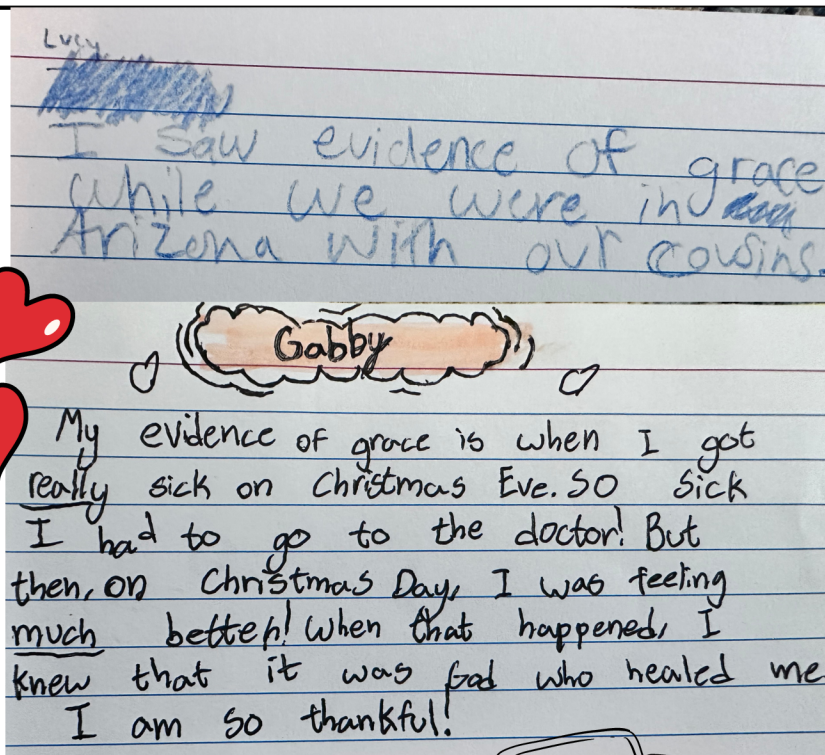 Lucy
I saw evidence of grace
while we were in
Arizona with our cousins.
Gabby
My evidence of grace is when I got
really sick on Christmas Eve. So sick
I had to go to the doctor! But
then, on Christmas Day, I was feeling
much better! When that happened, I
knew that it was God who healed me
I am so thankful!